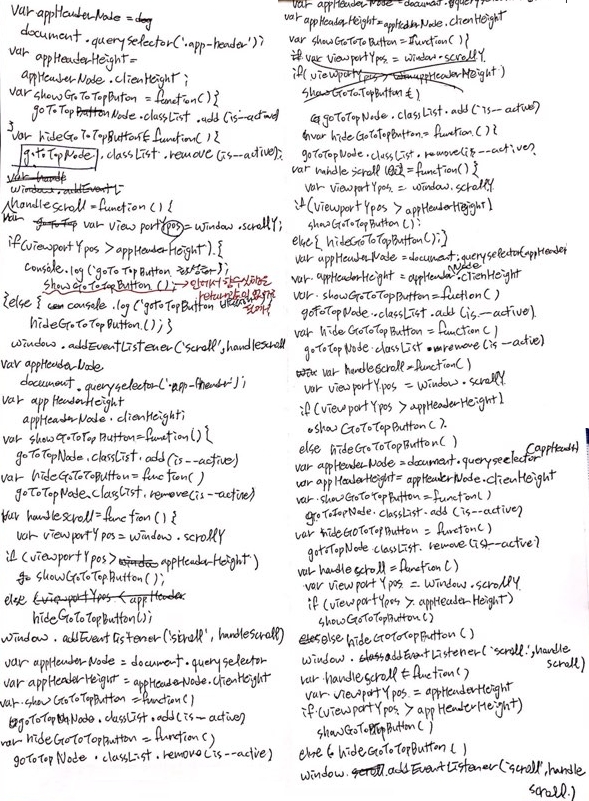 var appHeaderNode =
document.queryselector('.app-header');
var appHeaderHeight =
appHeaderNode.clienHeight;
var showGoToTopButon = function(){
goToTopNode.classList.add(is--active)
}
var hideGoToTopButton = function(){
goToTopNode.classList.remove(is--active);
handlescroll = function(){
var viewportYpos = window.scrollY;
if(viewportYpos > appHeaderHeight){
console.log('goToTopButton
showGoToTopButton();
}else{ console.log('goToTopButton
hideGoToTopButton();}
window.addEventListener('scroll', handlescroll
var appHeaderNode
document.queryselector('.app-header');
var appHeaderHeight
appHeaderNode.clienHeight;
var showGoToTopButton=function(){
goToTopNode.classList.add(is--active)
var hideGoToTopButton = function()
goToTopNode.classList.remove(is--active)
var handlescroll = function(){
var viewportYpos = window.scrollY
if (viewportYpos > appHeaderHeight)
showGoToTopButton();
else
hideGoToTopButton();
window.addEventListener('scroll', handlescroll)
var appHeaderNode = document.queryselector
var appHeaderHeight = appHeaderNode.clienHeight
var showGoToTopButton = function()
goToTopNode.classList.add(is--active)
var hideGoToTopButton = function()
goToTopNode.classList.remove(is--active)
var appHeaderHeight = appHeaderNode.clienHeight
var showGoToTopButton = function(){
goToTopNode.classList.add('is--active)
var hideGoToTopButton = function(){
goToTopNode.classList.remove(is--active)
var handle scroll = function(){
var viewportYpos = window.scrollY
if(viewportYpos > appHeaderHeight)
showGoToTopButton();
else{ hideGoToTopButton();}
var appHeaderNode = document.queryselector(appHeader
var appHeaderHeight = appHeaderNode.clienHeight
var showGoToTopButton = fuction()
goToTopNode.classList.add(is--active)
var hideGoToTopButton = function()
goToTopNode.classList.remove(is--active)
var handlescroll = function()
var viewportYpos = window.scrollY
if(viewportYpos > appHeaderHeight)
show GoToTopButton()
else hideGoToTopButton()
var appHeaderNode = document.queryselector(appHeader)
var appHeaderHeight = appHeaderNode.clienHeight
var showGoToTopButton = function()
goToTopNode.classList.add(is--active)
var hideGoToTopButton = function()
goToTopNode.classList.remove(is--active)
var handlescroll = function()
var viewportYpos = window.scrollY
if (viewportYpos > appHeaderHeight)
showGoToTopButton()
else hideGoToTopButton()
window.addEventListener('scroll', handle
scroll)
var handlescroll = function()
var viewportYpos = appHeaderHeight
if(viewportYpos > appHeaderHeight)
showGoToTopButton()
else hideGoToTopButton()
window.addEventListener('scroll', handle
scroll)